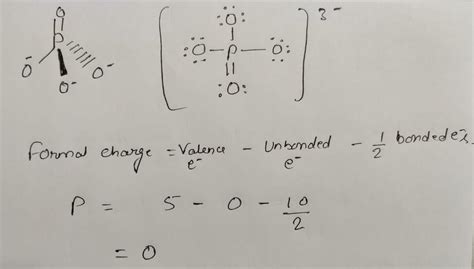 O
P
O⁻ O⁻ O⁻
:Ö: 3-
:Ö — P — Ö:
:O:
Formal charge = Valence e⁻ - Unbonded e⁻ - 1/2 bonded e⁻s.
P = 5 - 0 - 10/2
= 0